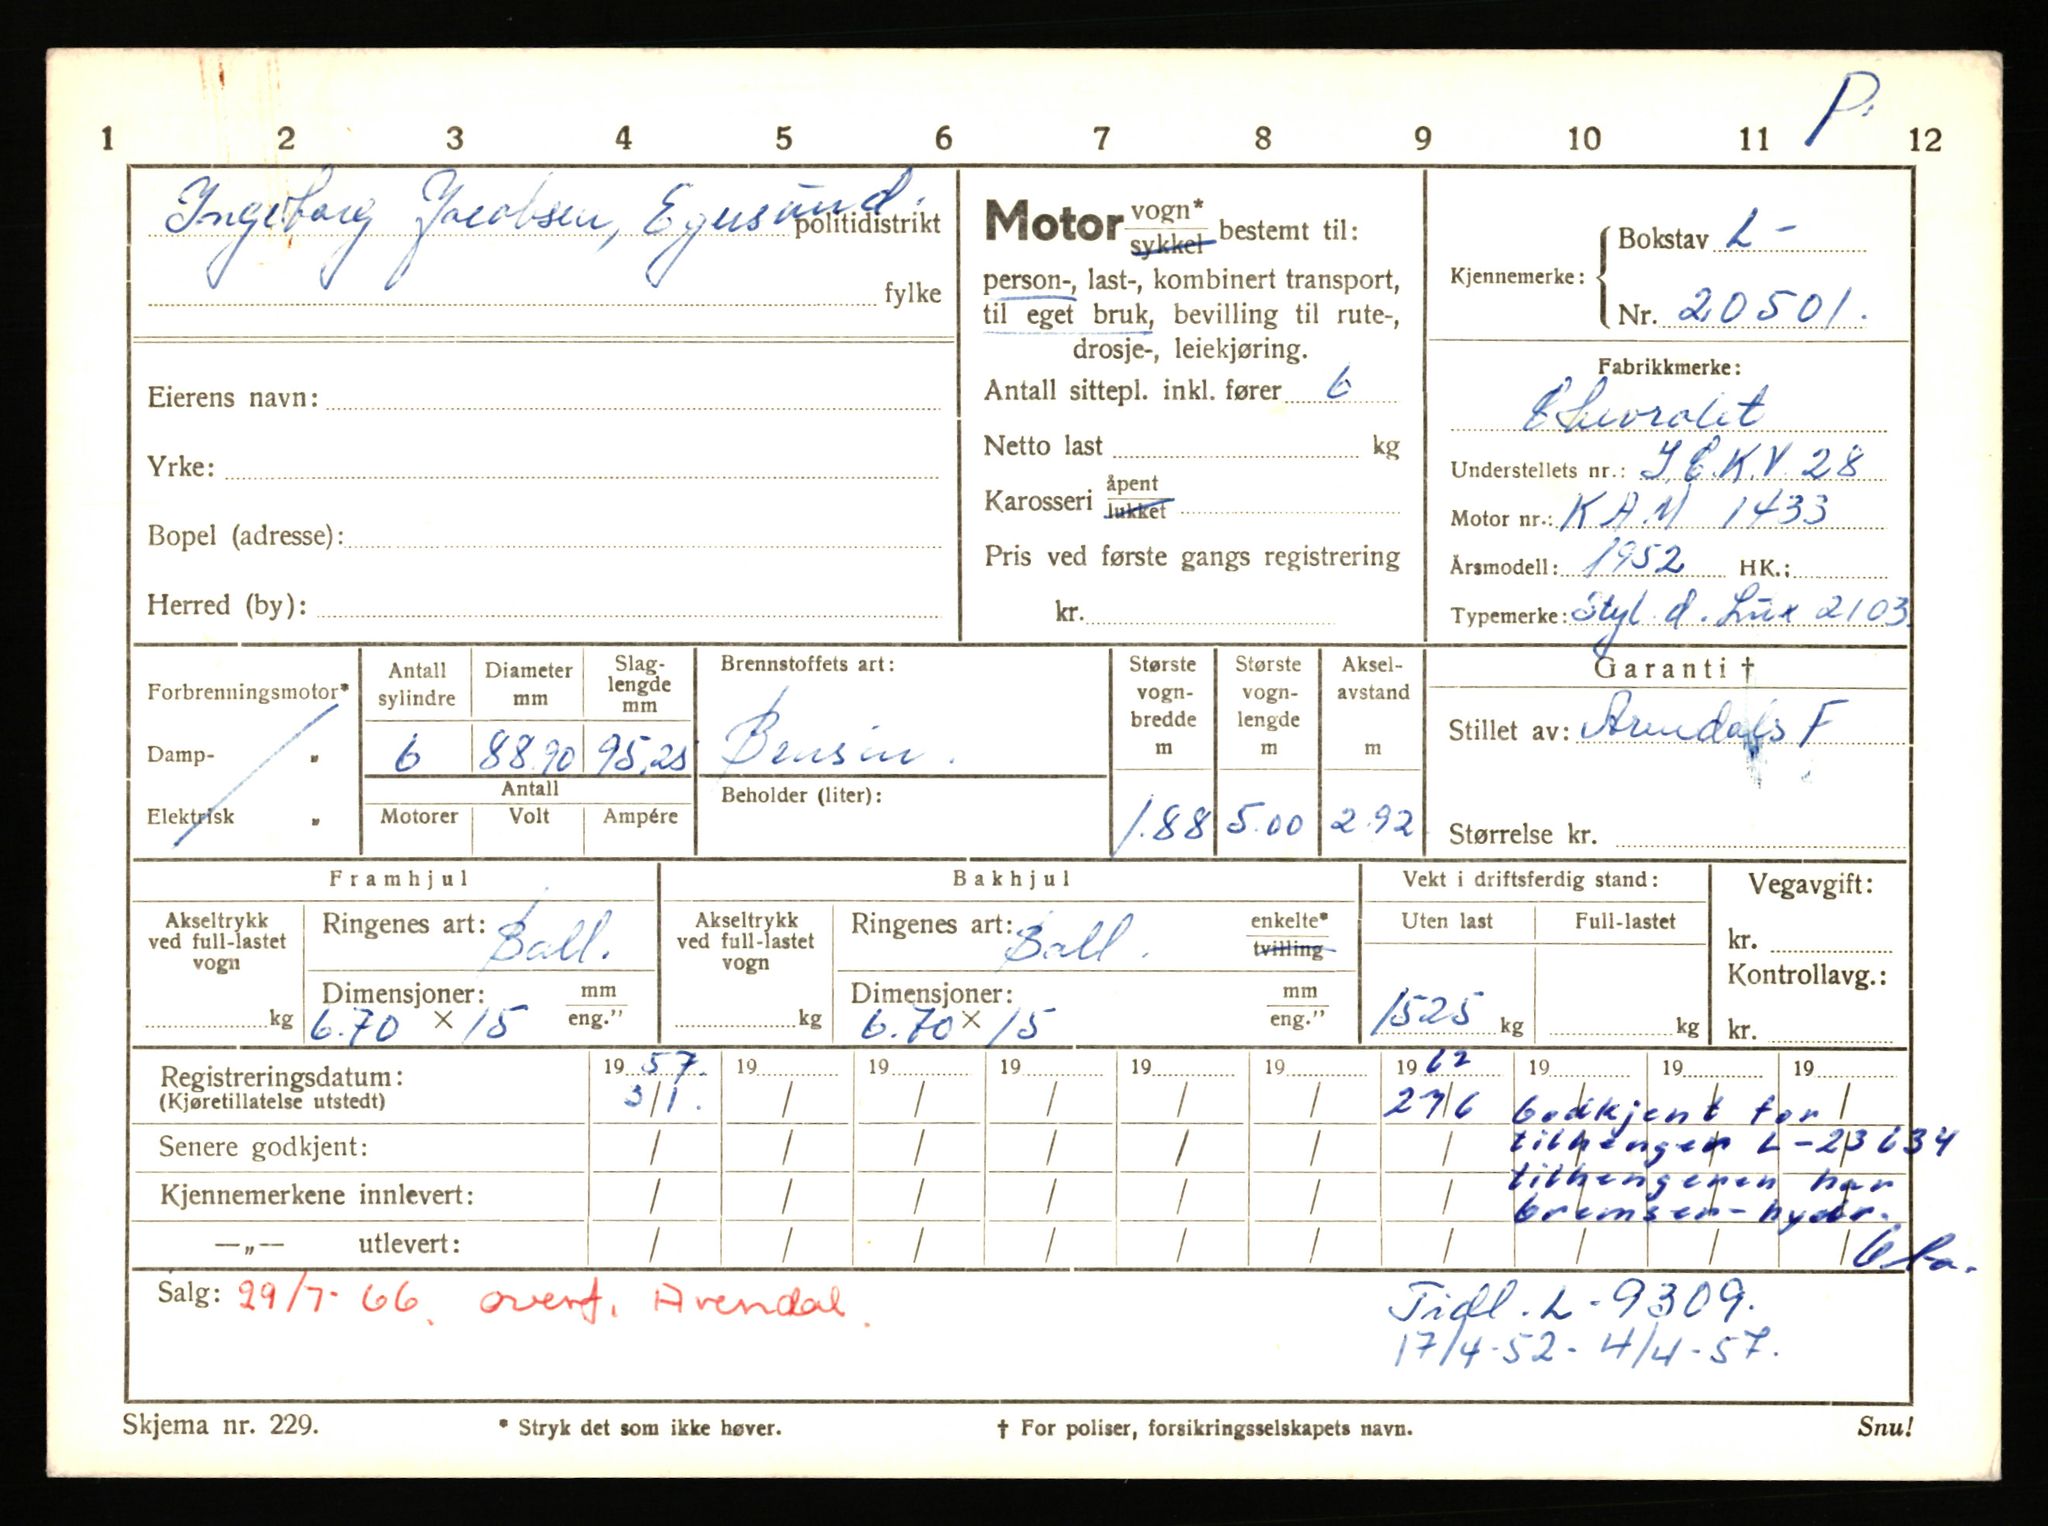 P.
1 2 3 4 5 6 7 8 9 10 11 12
Ingeborg Jacobsen, Egersund.
politidistrikt
fylke
Eierens navn:
Yrke:
Bopel (adresse):
Herred (by):
Motor vogn* sykkel bestemt til:
person-, last-, kombinert transport,
til eget bruk, bevilling til rute-,
drosje-, leiekjøring.
Antall sittepl. inkl. fører 6
Netto last kg
Karosseri åpent lukket
Pris ved første gangs registrering
kr.
Kjennemerke: Bokstav L-
Nr. 20501.
Fabrikkmerke:
Chevrolet
Understellets nr.: J.E.K.V. 28
Motor nr.: KAM 1433
Årsmodell: 1952 HK.:
Typemerke: Styl. d. Lux 2103.
Forbrenningsmotor*
Damp- "
Elektrisk "
Antall sylindre
Diameter mm
Slag-lengde mm
6 88.90 95,25
Antall
Motorer Volt Ampére
Brennstoffets art:
Bensin.
Beholder (liter):
Største vogn-bredde m
1.88
Største vogn-lengde m
5.00
Aksel-avstand m
2.92
Garanti †
Stillet av: Arendals F
Størrelse kr.
Framhjul
Akseltrykk ved full-lastet vogn
kg
Ringenes art: Ball.
Dimensjoner: mm eng."
6.70 × 15
Bakhjul
Akseltrykk ved full-lastet vogn
kg
Ringenes art: Ball. enkelte* tvilling
Dimensjoner: mm eng."
6.70 × 15
Vekt i driftsferdig stand:
Uten last Full-lastet
1525 kg kg
Vegavgift:
kr.
Kontrollavg.:
kr.
Registreringsdatum: 19 57. 19 19 19 19 19 19 62 19 19 19
(Kjøretillatelse utstedt) 3/1. / / / / / 27/6 Godkjent for
Senere godkjent: tilhenger L-23634
Kjennemerkene innlevert: tilhengeren har
bremser-hydr.
—„— utlevert:
Salg: 29/7-66. overf. Arendal.
Tidl. L-9309.
17/4-52-4/4-57.
Skjema nr. 229.
* Stryk det som ikke høver.
† For poliser, forsikringsselskapets navn.
Snu!